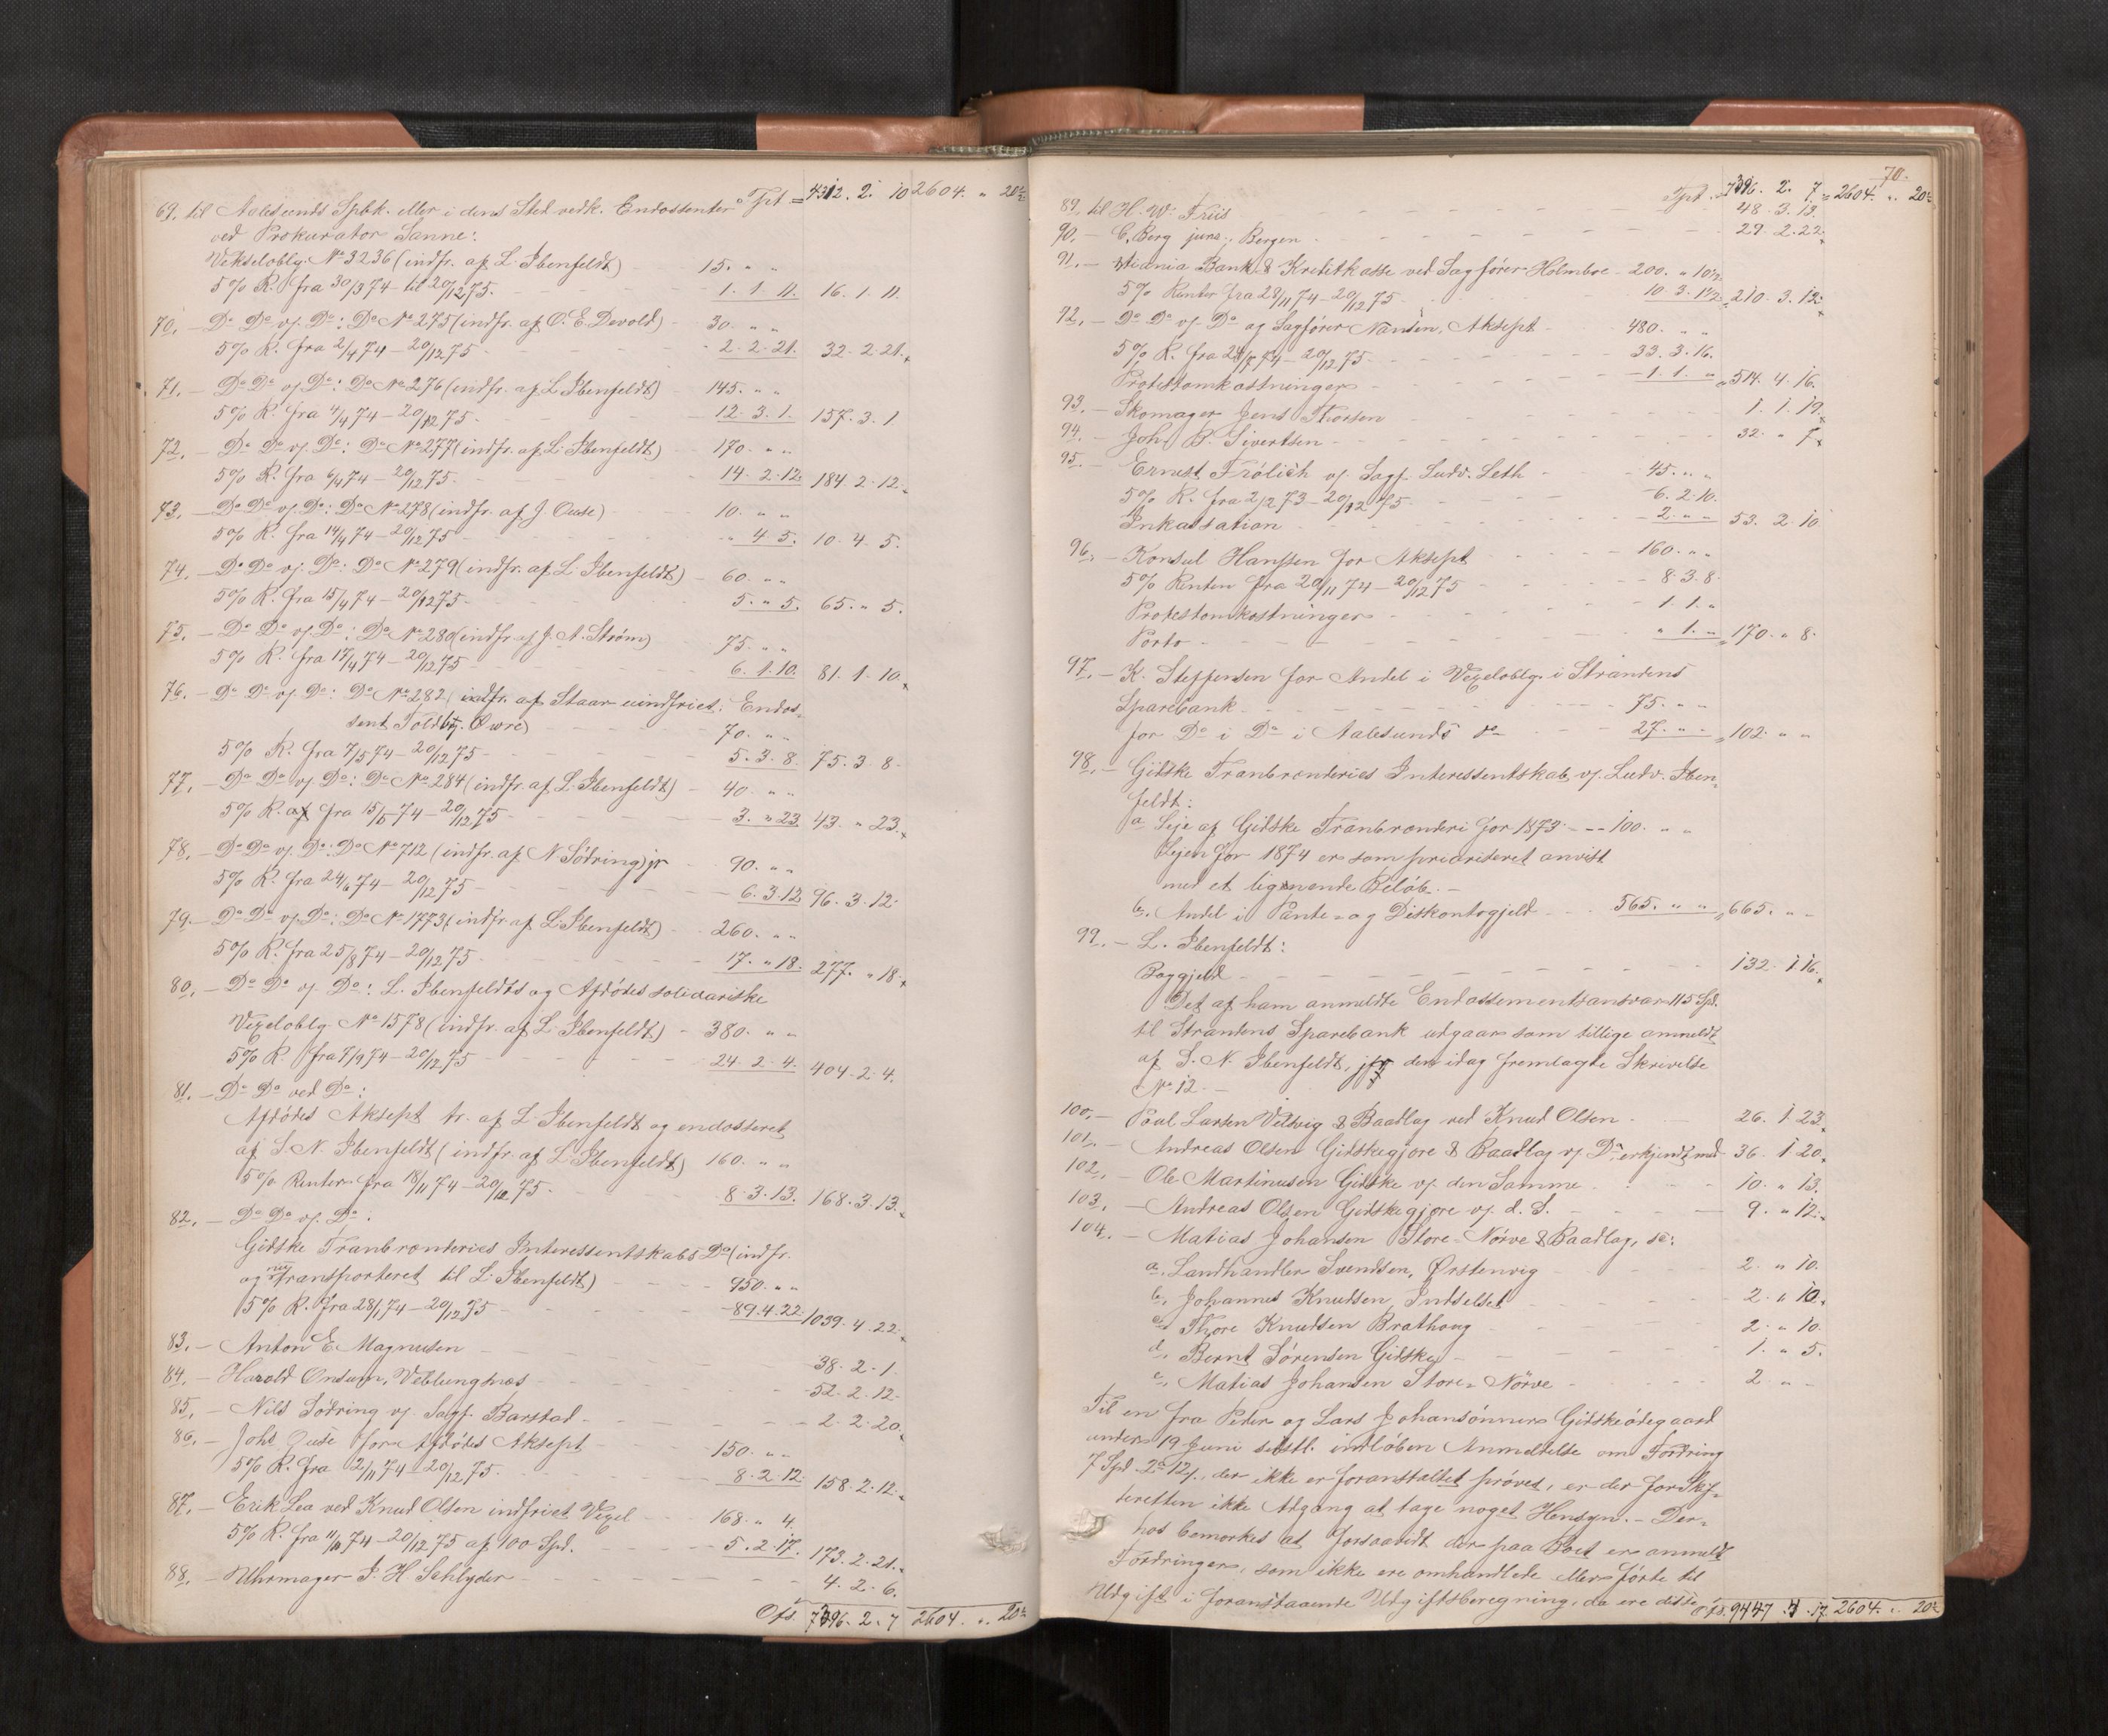 Tpt = 4312. 2. 10 2604. " 20½
69. til Aalesunds Spbk. eller i dens Sted vedk. Endossenter
ved Prokurator Sanne:
Vekseloblg. No 3236 (indfr. af L. Ibenfeldt) 15. " "
5% R. fra 30/3 74 - til 20/12 75. 1. 1. 11. 16. 1. 11.
70. - Do Do v/. Do: Do No 275 (indfr. af O. E. Devold) 30. " "
5% R. fra 2/4 74 - 20/12 75 - 2. 2. 21. 32. 2. 21.
71. - Do Do v/. Do: Do No 276 (indfr. af L. Ibenfeldt) 145. " "
5% R. fra 4/4 74 - 20/12 75. 12. 3. 1. 157. 3. 1
72. - Do Do v/. Do: Do No 277 (indfr. af L. Ibenfeldt) 170. " "
5% R. fra 6/4 74 - 20/12 75. 14. 2. 12. 184. 2. 12.
73. - Do Do v/. Do: Do No 278 (indfr. af J. Ouse) 10. " "
5% R. fra 14/4 74 - 20/12 75 " 4. 5. 10. 4. 5.
74. - Do Do v/. Do: Do No 279 (indfr. af L. Ibenfeldt) 60. " "
5% R. fra 15/4 74 - 20/12 75. 5. " 5. 65. " 5.
75. - Do Do v/. Do: Do No 280 (indfr. af J. A. Strøm) 75. " "
5% R. fra 17/4 74 - 20/12 75 6. 1. 10. 81. 1. 10.
76. - Do Do v/. Do: Do No 282 ( af Staar uindfriet: Endos-
sent Toldbtj. Øwre) 70. " "
5% R. fra 7/5 74 - 20/12 75 - 5. 3. 8. 75. 3. 8.
77. - Do Do v/. Do: Do No 284 (indfr. af L. Ibenfeldt) 40. " "
5% R. af fra 15/5 74 - 20/12 75 - 3. " 23. 43. " 23.
78. - Do Do v/. Do: Do No 712 (indfr. af N. Sødring) jr 90. " "
5% R. fra 24/6 74 - 20/12 75 - 6. 3. 12 96. 3. 12.
79. - Do Do v/. Do: Do No 1773 (indfr. af L. Ibenfeldt) 260. " "
5% R. fra 25/8 74 - 20/12 75 - 17. " 18. 277. " 18.
80. - Do Do v/. Do: L. Ibenfeldts og Afdødes solidariske
Vexeloblg. No 1578 (indfr. af L. Ibenfeldt) - 380. " "
5% R. fra 7/9 74 - 20/12 75 24. 2. 4. 404. 2. 4.
81. - Do Do ved Do:
Afdødes Aksept tr. af L. Ibenfeldt og endosseret
af S. N. Ibenfeldt (indfr. af L. Ibenfeldt) 160. " "
5% Renter fra 18/11 74 - 20/12 75. 8. 3. 13. 168. 3. 13.
82. - Do Do v/. Do:
Gidske Tranbrænderies Interessentskabs Do (indfr.
og transporteret til L. Ibenfeldt) 950. " "
5% R. fra 28/1 74 - 20/12 75 - 89. 4. 22. 1039. 4. 22.
83. - Anton E. Magnusen 38. 2. 1.
84. - Harald Onsum, Veblungsnæs 52. 2. 12.
85. - Nils Sødring v/. Sagf. Barstad 2. 2. 20.
86. - Johs Ouse for Afdødes Aksept 150. " "
5% R. fra 2/11 74 - 20/12 75. 8. 2. 12. 158. 2. 12.
87. - Erik Lea ved Knud Olsen indfriet Vexel 168. " 4.
5% R. fra 11/11 74 - 20/12 75 af 100 Spd. 5. 2. 17. 173. 2. 21.
88. - Uhrmager P. H. Schlyder 4. 2. 6.
Ofs. 7396. 2. 7 2604. " 20½
70.
Tpt. 7396. 2. 7. 2604. " 20½
89. til H. W. Friis 48. 3. 13.
90. - C. Berg junr., Bergen 29. 2. 22.
91. - Xtiania Bank & Kreditkasse ved Sagfører Holmboe - 200. " 10½
5% Renter fra 28/11 74 - 20/12 75 10. 3. 1½ 210. 3. 12.
92. - Do Do v/. Do og Sagfører Nansen, Aksept 480. " "
5% R. fra 74 - 20/12 75 33. 3. 16.
Protestomkostninger 1. 1. " 514. 4. 16.
93. - Skomager Jens Thorsen 1. 1. 19.
94. - Joh. B. Sivertsen 32. " 7.
95. - Ernst Frølich v/. Sagf. Ludv. Leth 45. " "
5% R. fra 2/2 73 - 20/12 75 6. 2. 10.
Inkassation 2. " " 53. 2. 10
96. - Konsul Hanssen for Aksept 160. " "
5% Renten fra 20/11 74 - 20/12 75 8. 3. 8.
Protestomkostninger 1. 1. "
Porto " 1. " 170. " 8.
97. - K. Steffensen for Andel i Vexeloblg. i Strandens
Sparebank 75. " "
for Do i Do i Aalesunds do 27. " " 102. " "
98. - Gidske Tranbrænderies Interessentskab v/. Ludv. Iben-
feldt:
a. Leje af Gidske Tranbrænderi for 1873 - 100. " "
Lejen for 1874 er som prioriteret anvist
med et lignende Beløb. -
b. Andel i Pante- og Diskontogjeld 565. " " 665. " "
99. - L. Ibenfeldt:
Boggjeld 132. 1. 16.
Det af ham anmeldte Endossementsansvar 115 Spd.
til Strandens Sparebank udgaar som tillige anmeldt
af S. N. Ibenfeldt, jfr den idag fremlagte Skrivelse
No 12. -
100. - Poul Larsen Veltvig & Baadlag ved Knud Olsen 26. 1. 23.
101. - Andreas Olsen Gidskegjøre & Baadlag v/ Do, erkjendt med 36. 1. 20.
102. - Ole Martinusen Gidske v/. den Samme 10. " 13.
103. - Andreas Olsen Gidskegjøre v/. d. S. 9. " 12.
104. - Matias Johansen Store-Nørve & Baadlag, sc:
a. Landhandler Svendsen, Ørstenvig 2. " 10.
b. Johannes Knudsen, Indselset 2. " 10.
c. Thore Knudsen Brathaug 2. " 10.
d. Bernt Sørensen Gidske 1. " 5.
e. Matias Johansen Store-Nørve 2. " -
Til en fra Peder og Lars Johansønner Gidskeødegaard
under 19 Juni sidstl. indløben Anmeldelse om Fordring
7 Spd. 2 12, der ikke er foranstaltet prøvet, er der for Skif-
teretten ikke Adgang at tage noget Hensyn. - Der-
hos bemærkes at forsaavidt der paa Boet er anmeldt
Fordringer, som ikke ere omhandlede eller førte til
Udgift i foranstaaende Udgiftsberegning, da ere disse
Ofs. 9447. 4. 17. 2604. " 20½